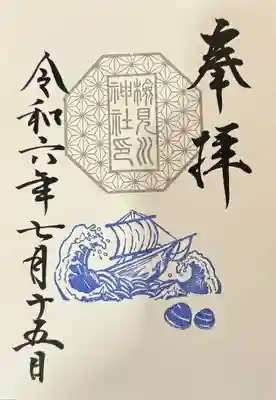 奉拝
検見川
神社印
令和六年七月十五日